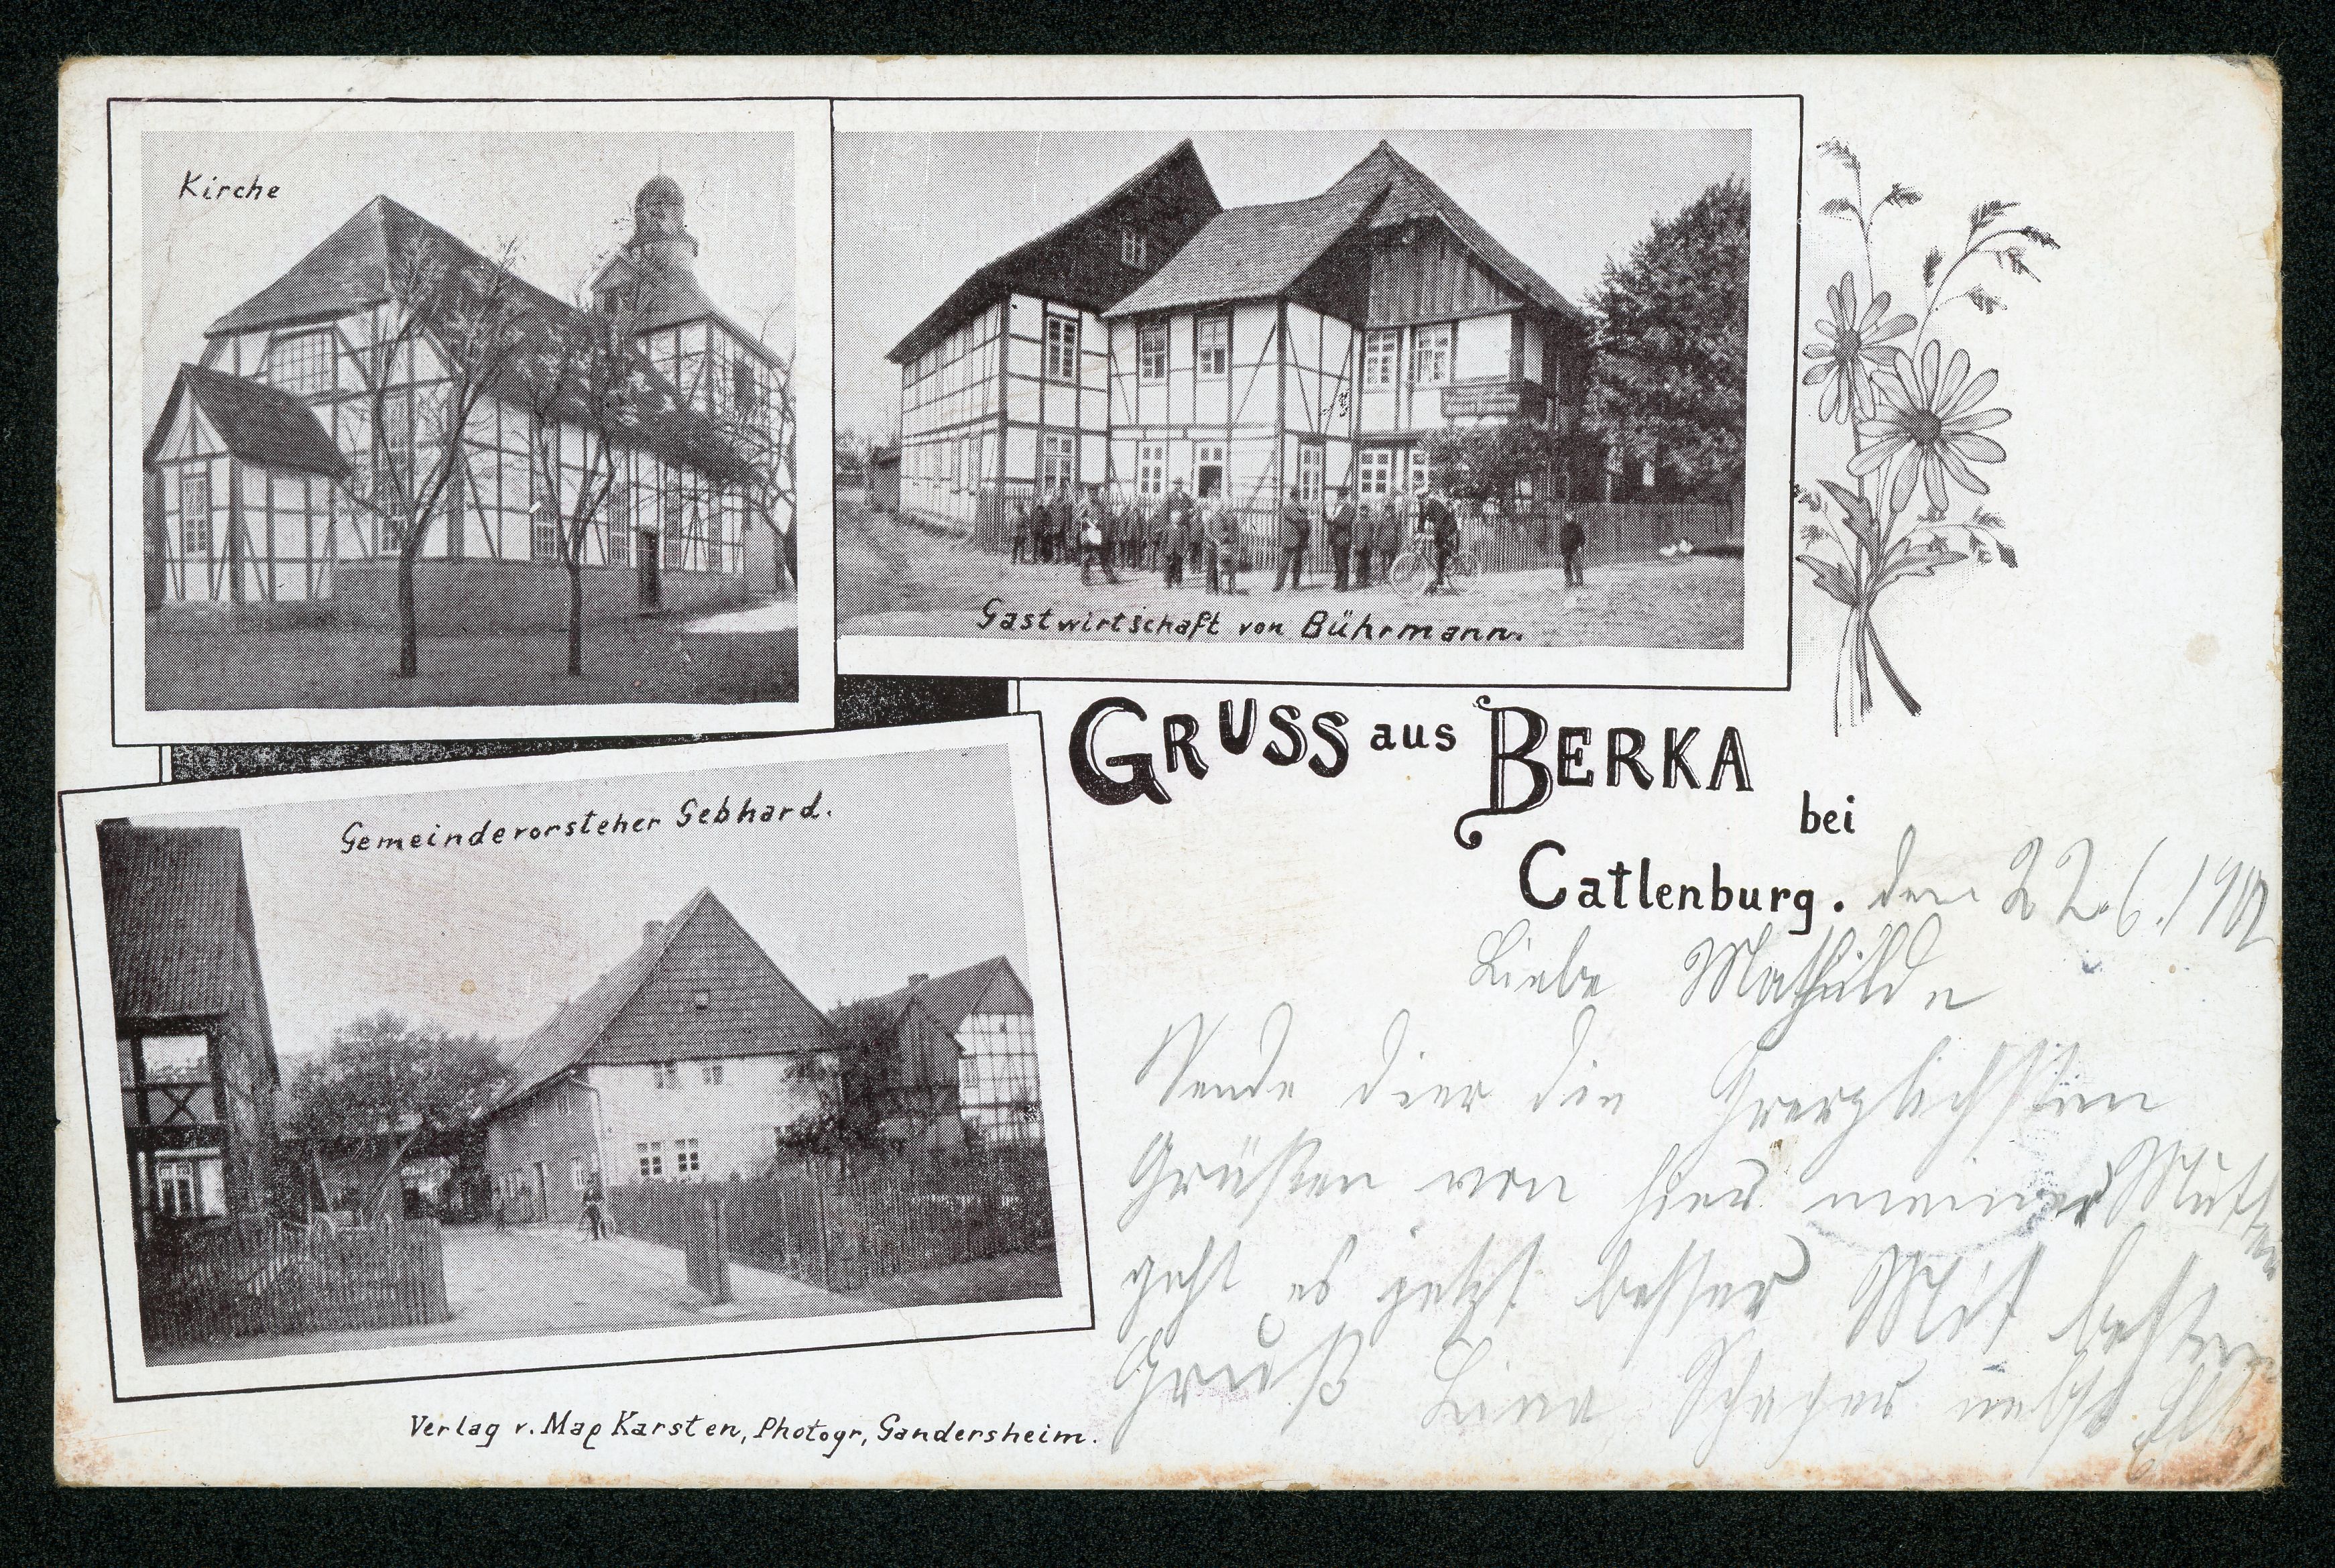 Kirche
Gastwirtschaft von Bührmann.
GRUSS aus BERKA
bei
Catlenburg. den 22.6.19
Liebe Mathilde
Sende dier die Herzlichsten
Grüßen von hier meiner Mutter
geht es jetzt besser Mit besten
Gruß Line nebst
Gemeindevorsteher Gebhard.
Verlag v. Max Karsten, Photogr, Gandersheim.